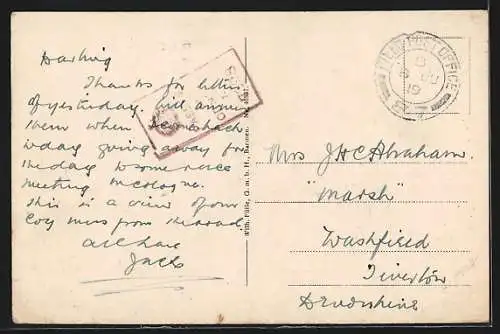 Darling
Thanks for letters
of yesterday. Will answer
them when I come back
today going away for
the day to some race
meeting in Cologne.
This is a view of our
Cosy mess from the road
All love
Jack
Wilh. Fülle, G. m. b. H., Barmen.
FIELD POST OFFICE
19
Mrs J H C Abraham.
"Marsh"
Washfield
Tiverton
Devonshire